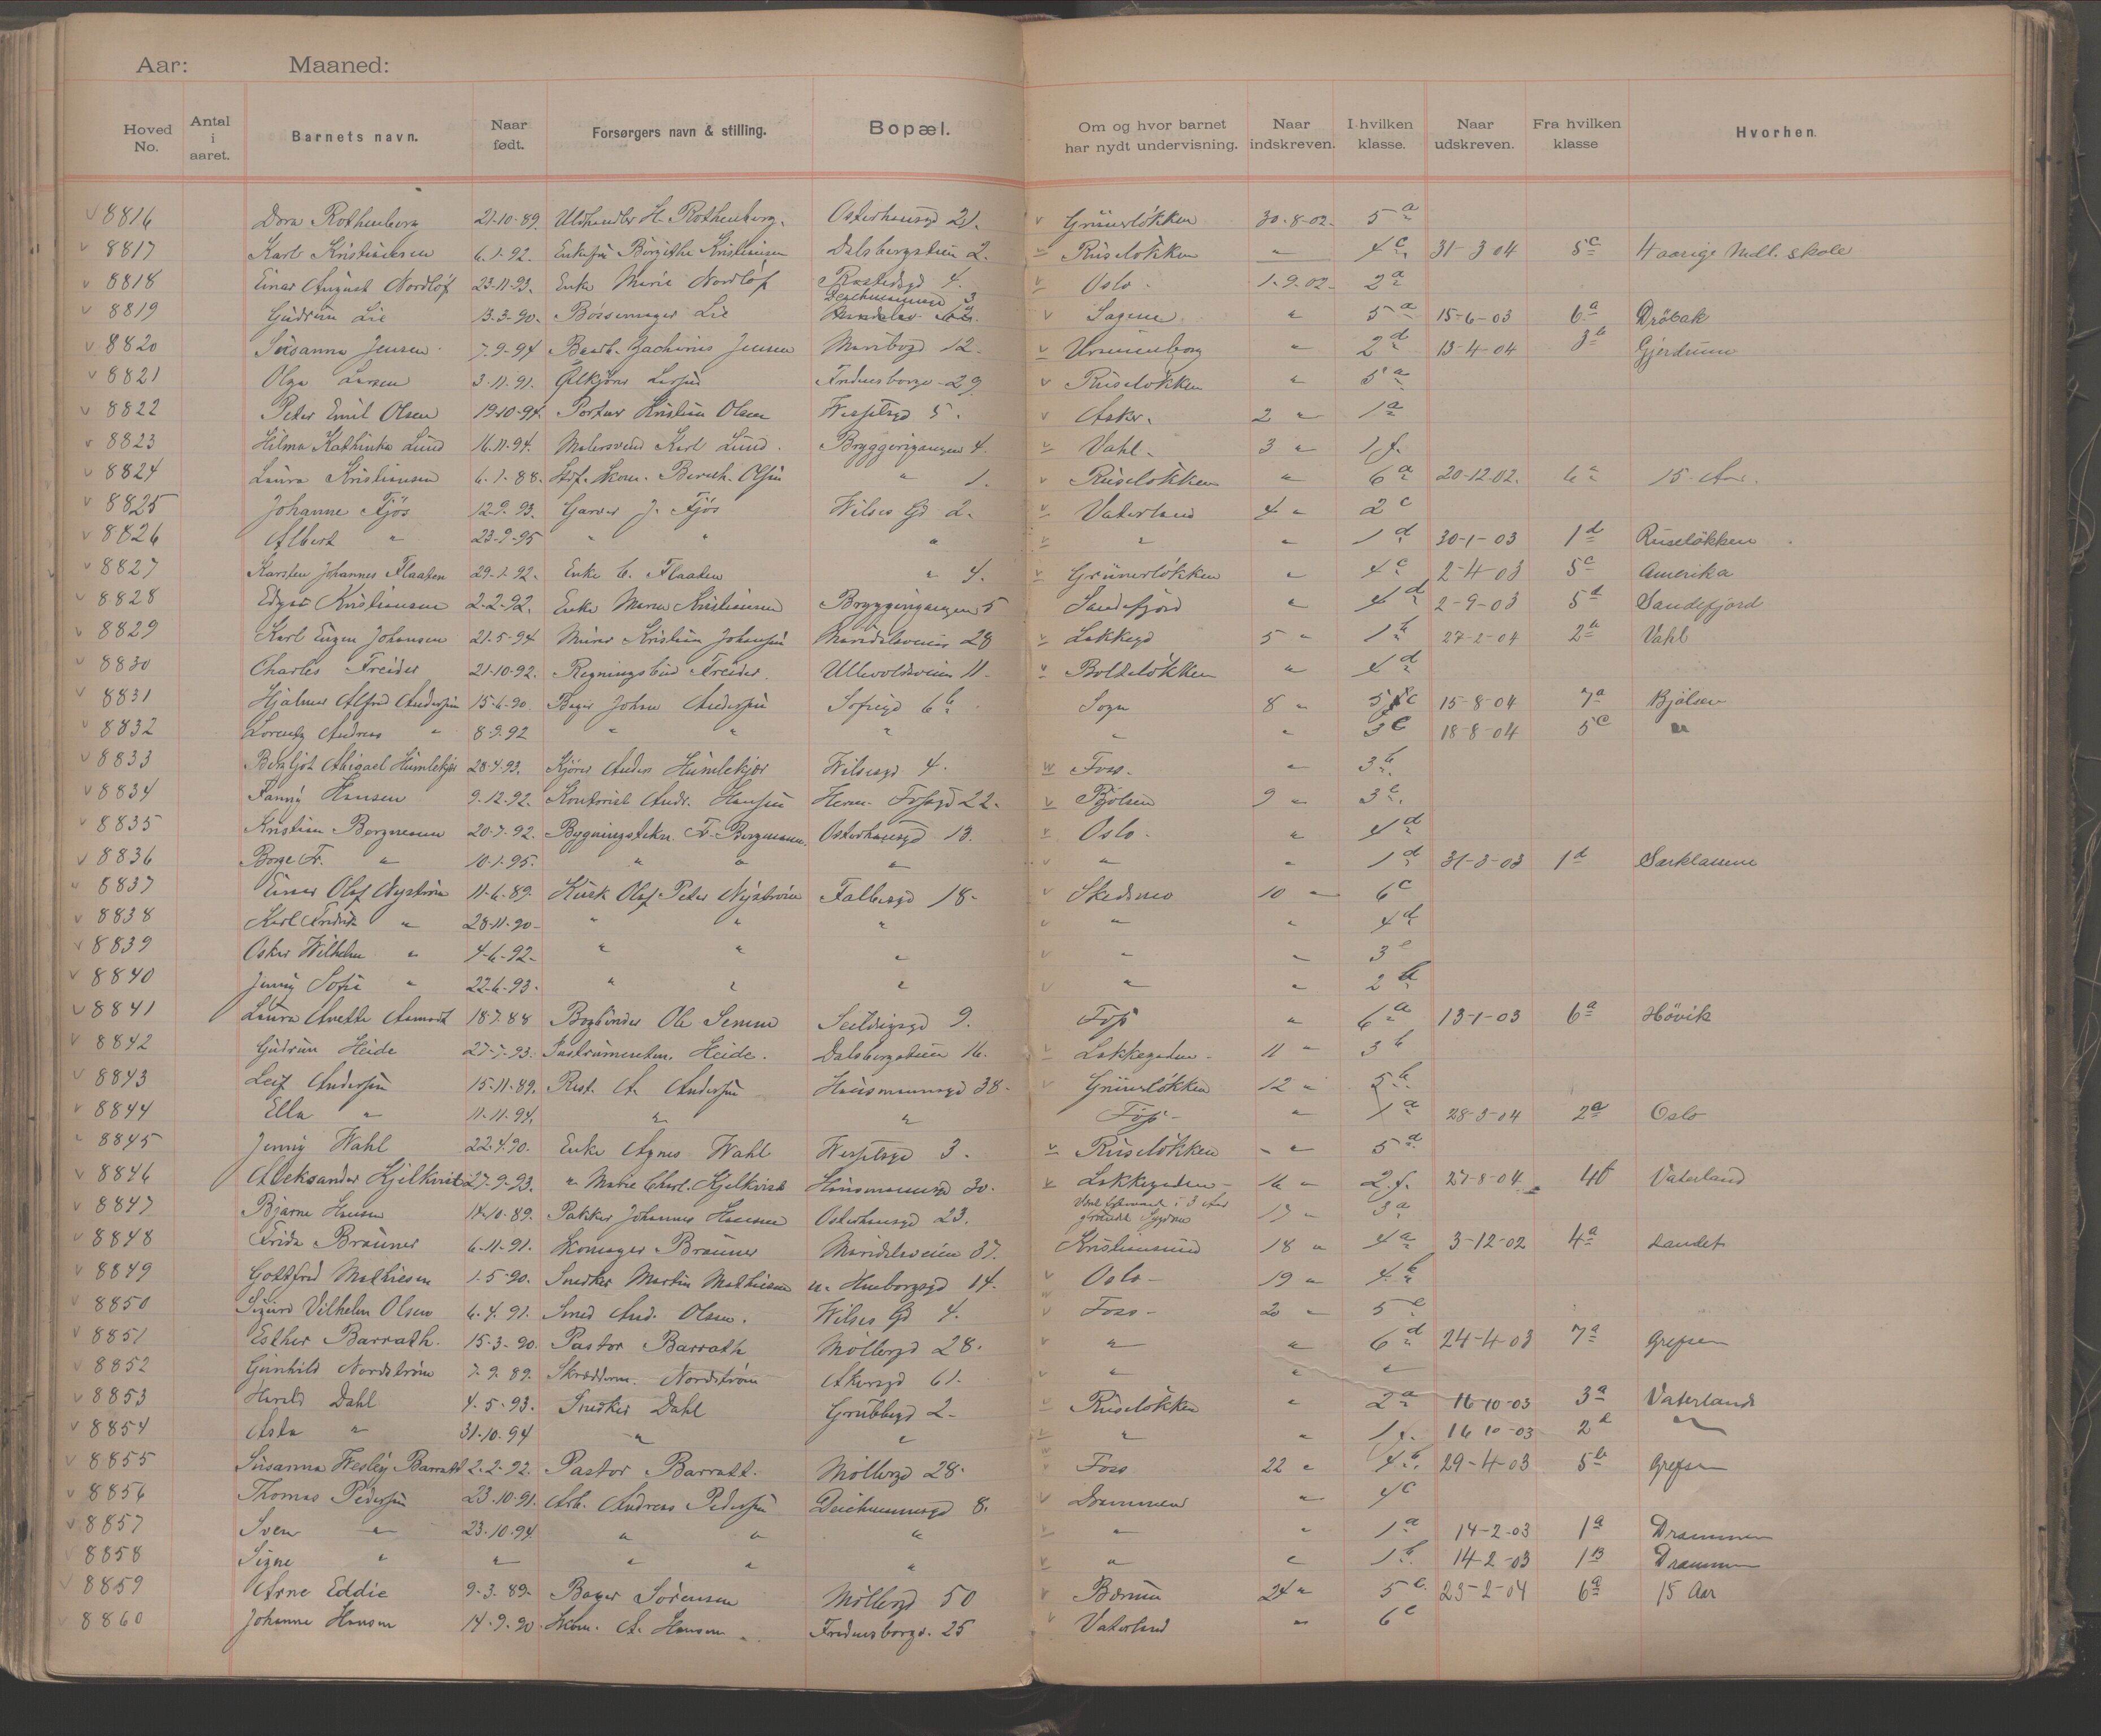 Aar: Maaned:
Hoved No. Antal i aaret. Barnets navn. Naar født. Forsørgers navn & stilling. Bopæl. Om og hvor barnet har nydt undervisning. Naar indskreven. I hvilken klasse. Naar udskreven. Fra hvilken klasse Hvorhen.
v 8816 Dora Rothenborg 21-10-89. Uldhandler H. Rothenborg. Osterhausgd 21. v Grünerløkken 30-8-02. 5a
v 8817 Karl Kristiansen 6.1.92. Enkefru Borgithe Kristiansen Dalsbergstien 2. v Ruseløkken " 4c 31-3 04 5c 4 aarige Mdl. skole
v 8818 Einar August Nordlöf 23-11-93. Enke Marie Nordlöf Rostedsgd 4. v Oslo - 1-9.02- 2a
v 8819 Gudrun Lie 13-3-90. Bøssemager Lie v Sagene " 5a 15-6-03 6a Drøbak
v 8820 Susanna Jensen 7-9-94 Zacharias Jensen Maribogd 12. v Uranienborg " 2d 13-4-04 3b Gjerdrum
v 8821 Olga Larsen 3-11-91. Ølkjører Larsen Fredensborgv. 29 v Ruseløkken " 5a
v 8822 Peter Emil Olsen 19-10-94 Portner Kristian Olsen Wesselsgd 5. v Asker. 2 " 1a
v 8823 Hilma Kathinka Lund 16.11-94. Malersvend Karl Lund. Bryggerigangen 4. v Vahl. 3 " 1f.
v 8824 Laura Kristiansen 6-1-88. Stif. Skom. Bernh. Olsen " 1. v Ruseløkken " 6a 20-12.02. 6a 15 Aar.
v 8825 Johanne Fjøs 12-9. 93. Garver J. Fjøs Wilses Gd 2. v Vaterland 4 " 2c
v 8826 Albert " 23-9-95 " " " v " " 1d 30-1-03 1d Ruseløkken
v 8827 Karsten Johannes Flaaten 29-1-92. Enke C. Flaaten " 4. v Grünerløkken " 4c 2-4-03 5c Amerika
v 8828 Edgar Kristiansen 2-2-92. Enke Maren Kristiansen Bryggerigangen 5 Sandefjord " 4d 2-9-03 5d Sandefjord
v 8829 Karl Eugen Johansen 21-5-94 Murer Kristian Johansen Maridalsveien 28 v Lakkegd 5 " 1b 27-2-04 2b Vahl
v 8830 Charles Freider 21-10-92. Regningsbud Freider. Ullevoldsveien 11. v Bolteløkken " 4d
v 8831 Hjalmar Alfred Andersen 15-6-90. Bager Johan Andersen Sofiegd 6b Sogn 8 " 5c 15-8-04 7a Bjølsen
v 8832 Lorentz Andreas " 8-9-92 " " " " " 3c 18-8-04 5c "
v 8833 Bergljot Abigael Humlekjær 28-4-93. Kjører Anders Humlekjær Wilsesgd 4. v Foss. " 3b.
v 8834 Fanny Hansen 9-12-92. Kontorist Andr. Hansen Herm. Fossgd 22. v Bjølsen 9 " 3c.
v 8835 Kristian Borgmann 20-7-92. Bygningstekn. Fr. Borgmann. Osterhausgd 13. v Oslo - " 4d
v 8836 Borge Fr. " 10-1-95. " " " v " " 1d 31-3-03 1d Særklassene
v 8837 Einar Olaf Nyström 11-6-89. Kusk Olaf Peter Nyström Falbesgd 18. v Skedsmo 10 " 6c
v 8838 Karl Fredrik " 28-11-90- " " " v " " 4d
v 8839 Oskar Wilhelm " 4-6-92- " " " v " " 3e
v 8840 Jenny Sofie " 22-6-93. " " " v " " 2b
v 8841 Laura Anette Aamodt 18-7.88 Bogbinder Ole Semme Seilduksgd 9. Foss " 6a 13-1-03 6a Høvik
v 8842 Gudrun Heide 27-7-93. Instrumentm. Heide. Dalsbergstien 16. v Lakkegaden - 11 " 3b
v 8843 Leif Andersen 15-11-89. Rest. A. Andersen Hausmannsgd 38. v Grünerløkken 12 " 5b.
v 8844 Ella " 11-11-94. " " Foss - " 1a 28-3-04 2a Oslo
v 8845 Jenny Wahl 22.4.90. Enke Agnes Wahl Wesselsgd 3. v Ruseløkken " 5a
v 8846 Aleksander Kjelkvist 27-9-93. " Marie Charl. Kjelkvist Hausmannsgd 30. v Lakkegaden - 16 " 2.f. 27-8-04 4b Vaterland
v 8847 Bjarne Hansen 14-10-89. Pakker Johannes Hansen Osterhausgd 23. i 3 Aar grundet Sygdom 17 " 3a
v 8848 Frida Brauner 6-11-91. Skomager Brauner Maridalsveien 37. Kristiansund 18 " 4a 3-12-02 4a Landet
v 8849 Gottfred Mathiesen 1-5-90. Snedker Martin Mathiesen 14. v Oslo - 19 " 4b
v 8850 Sigurd Vilhelm Olsen 6-4.91. Smed And. Olsen. Wilses Gd 4. v Foss - 20 " 5e
v 8851 Esther Barrath. 15-3-90. Pastor Barrath Møllergd 28. v " " 6d 24-4-03 7a Grefsen
v 8852 Gunhild Nordström 7-9. 89. Skrædderm. Nordström Akersgd 61. v " " "
v 8853 Harald Dahl 4-5-93. Snedker Dahl Grubbegd 2- v Ruseløkken " 2a 16-10-03 3a Vaterland
v 8854 Asta " 31-10.94 " " v " " 1f. 16 10-03 2d "
v 8855 Susanna Wesley Barratt 2-2-92. Pastor Barratt. Møllergd 28. v Foss 22 " 4b. 29-4-03 5b Grefsen
v 8856 Thomas Pedersen 23-10-91. Arb. Andreas Pedersen Deichmannsgd 8. v Drammen " 4c
v 8857 Sven " 23-10-94 " " " v " " 1a 14-2-03 1a Drammen
v 8858 Signe " " " " " v " " 1b. 14-2-03 1B Drammen
v 8859 Arne Eddie 9-3-89- Bager Sørensen Møllergd 50 v Bærum 24 " 5c. 23-2-04 6a 15 Aar
v 8860 Johanne Hansen 14-9-90. Skom. A. Hansen Fredensborgv. 25 v Vaterland " 6c